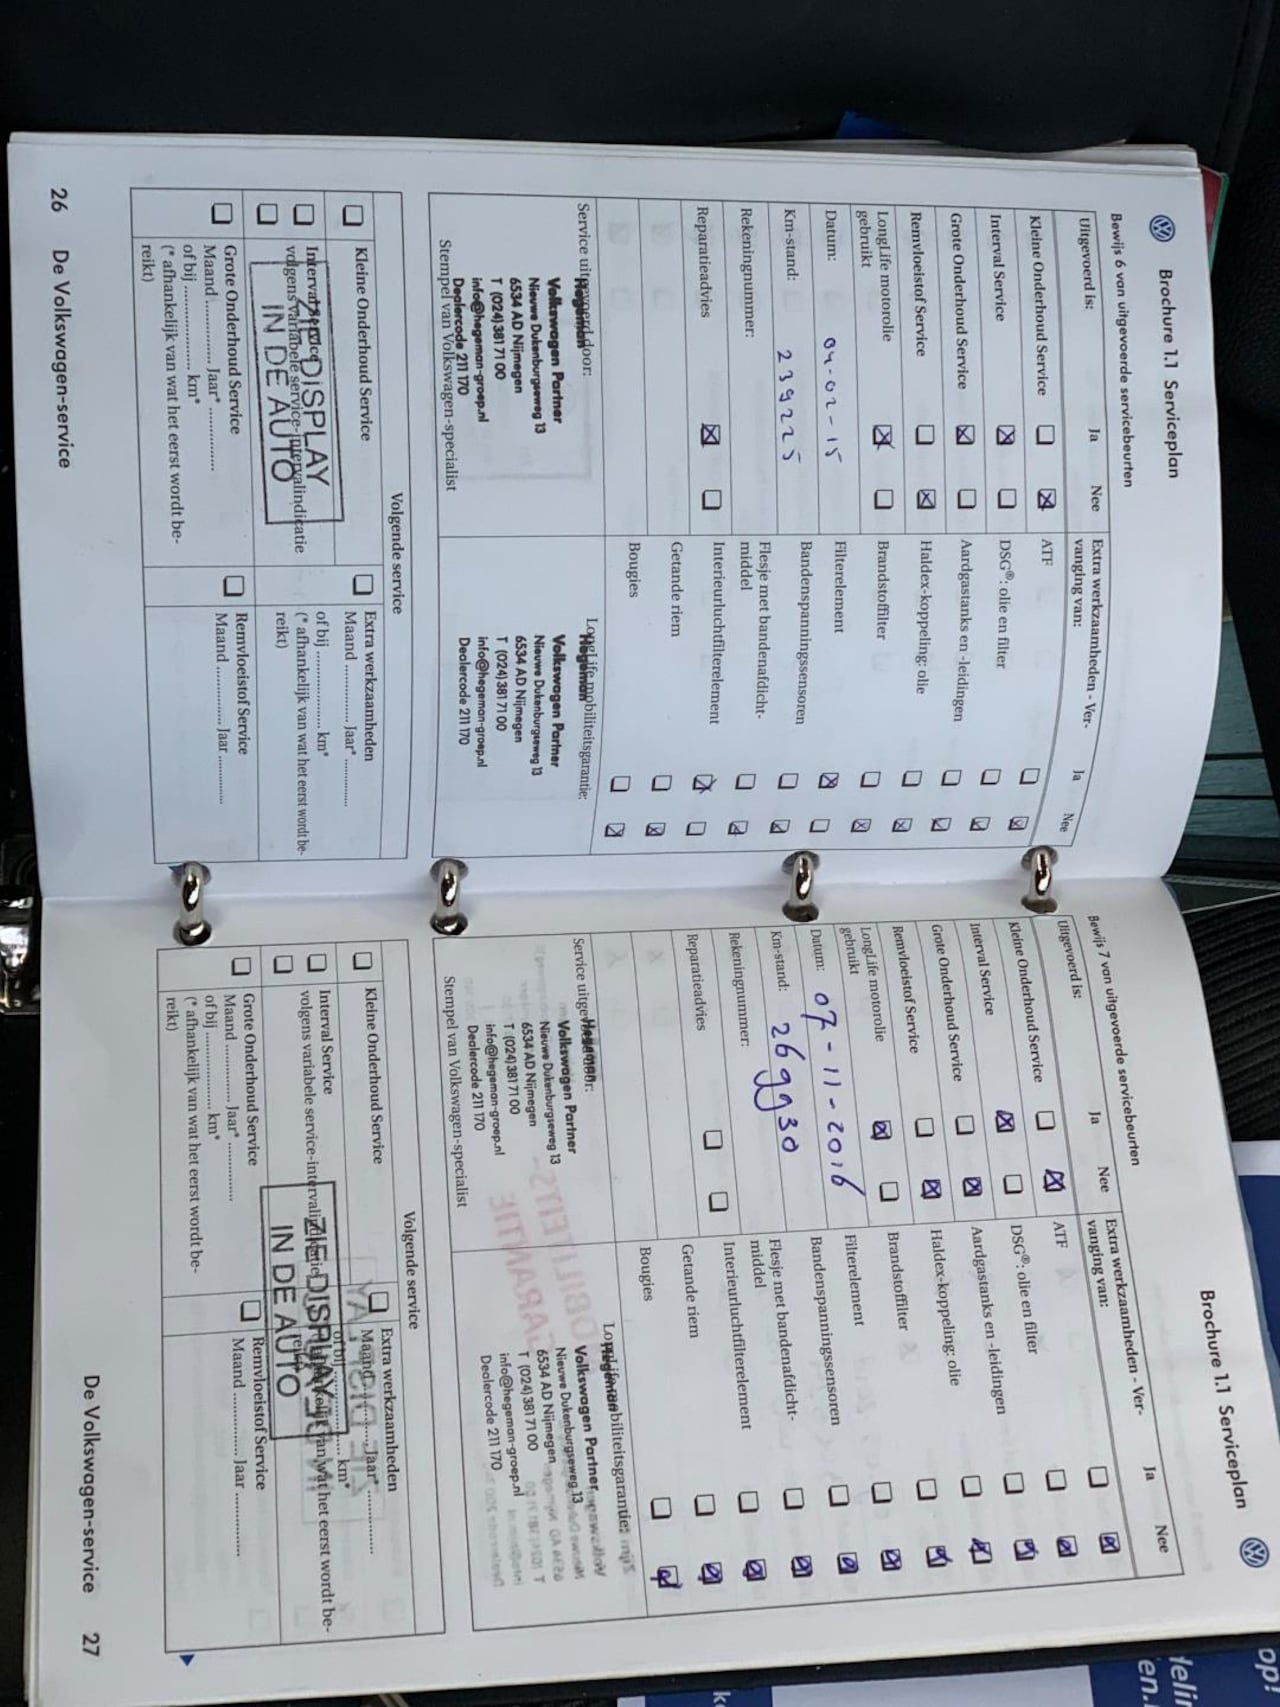 Brochure 1.1 Serviceplan
Bewijs 6 van uitgevoerde servicebeurten
Uitgevoerd is:
Ja
Nee
Kleine Onderhoud Service
Interval Service
Grote Onderhoud Service
Remvloeistof Service
LongLife motorolie
gebruikt
Datum: 04-02-15
Km-stand: 239225
Rekeningnummer:
Reparatieadvies
Extra werkzaamheden - Ver-
vanging van:
Ja
Nee
ATF
DSG®: olie en filter
Aardgastanks en -leidingen
Haldex-koppeling: olie
Brandstoffilter
Filterelement
Bandenspanningssensoren
Flesje met bandenafdicht-
middel
Interieurluchtfilterelement
Getande riem
Bougies
Service uitgevoerd door:
Hegeman
Volkswagen Partner
Nieuwe Dukenburgseweg 13
6534 AD Nijmegen
T (024) 381 71 00
info@hegeman-groep.nl
Dealercode 211 170
Stempel van Volkswagen-specialist
LongLife mobiliteitsgarantie:
Hegeman
Volkswagen Partner
Nieuwe Dukenburgseweg 13
6534 AD Nijmegen
T (024) 381 71 00
info@hegeman-groep.nl
Dealercode 211 170
Volgende service
Kleine Onderhoud Service
Interval Service
volgens variabele service-intervalindicatie
ZIE DISPLAY
IN DE AUTO
Grote Onderhoud Service
Maand ............ Jaar* ................
of bij ................ km*
(* afhankelijk van wat het eerst wordt be-
reikt)
Extra werkzaamheden
Maand ............ Jaar* ................
of bij ................ km*
(* afhankelijk van wat het eerst wordt be-
reikt)
Remvloeistof Service
Maand ............ Jaar ............
26 De Volkswagen-service
Brochure 1.1 Serviceplan
Bewijs 7 van uitgevoerde servicebeurten
Uitgevoerd is:
Ja
Nee
Kleine Onderhoud Service
Interval Service
Grote Onderhoud Service
Remvloeistof Service
LongLife motorolie
gebruikt
Datum: 07-11-2016
Km-stand: 269930
Rekeningnummer:
Reparatieadvies
Extra werkzaamheden - Ver-
vanging van:
Ja
Nee
ATF
DSG®: olie en filter
Aardgastanks en -leidingen
Haldex-koppeling: olie
Brandstoffilter
Filterelement
Bandenspanningssensoren
Flesje met bandenafdicht-
middel
Interieurluchtfilterelement
Getande riem
Bougies
Service uitgevoerd door:
Hegeman
Volkswagen Partner
Nieuwe Dukenburgseweg 13
6534 AD Nijmegen
T (024) 381 71 00
info@hegeman-groep.nl
Dealercode 211 170
Stempel van Volkswagen-specialist
LongLife mobiliteitsgarantie:
Hegeman
Volkswagen Partner
Nieuwe Dukenburgseweg 13
6534 AD Nijmegen
T (024) 381 71 00
info@hegeman-groep.nl
Dealercode 211 170
Volgende service
Kleine Onderhoud Service
Interval Service
volgens variabele service-intervalindicatie
ZIE DISPLAY
IN DE AUTO
Grote Onderhoud Service
Maand ............ Jaar* ................
of bij ................ km*
(* afhankelijk van wat het eerst wordt be-
reikt)
Extra werkzaamheden
Maand ............ Jaar* ................
of bij ................ km*
(* afhankelijk van wat het eerst wordt be-
Remvloeistof Service
Maand ............ Jaar ................
De Volkswagen-service 27
op!